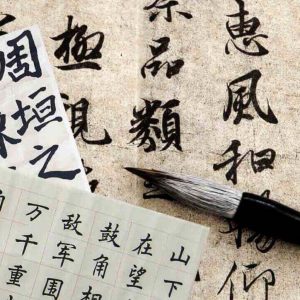 惠風和暢仰
品類
極視
周垣之
山下
在望
鼓角相
敌军围
万千重